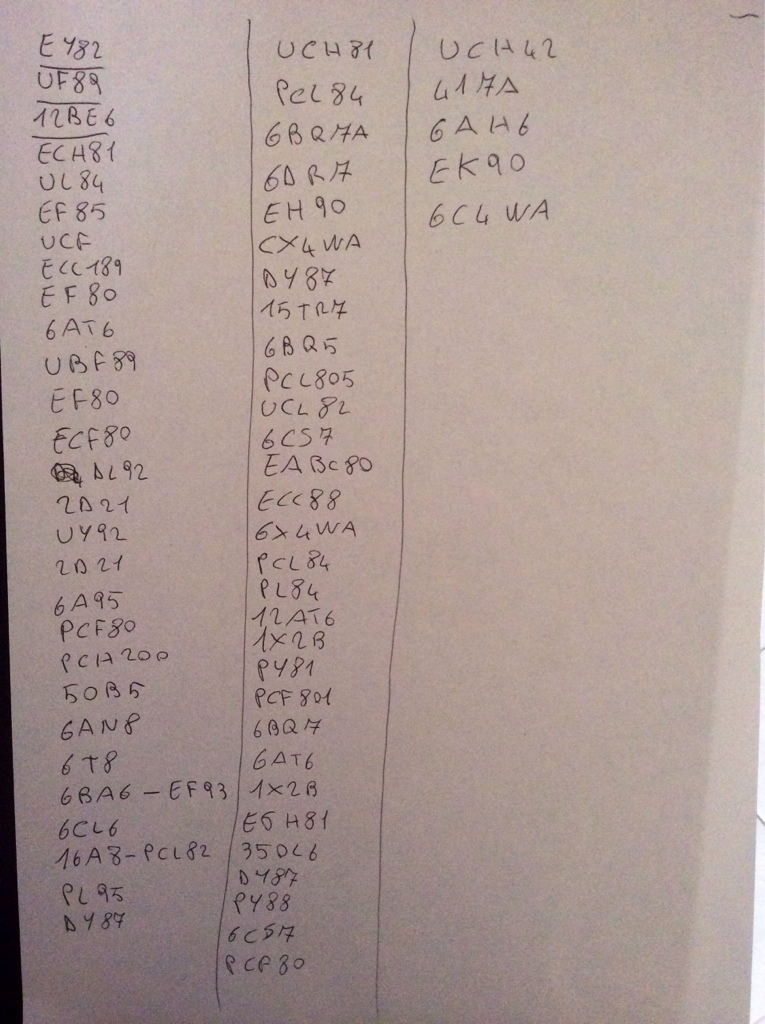 EY82
UF89
12BE6
ECH81
UL84
EF85
UCF
ECC189
EF80
6AT6
UBF89
EF80
ECF80
DL92
2D21
UY92
2D21
6A95
PCF80
PCH200
50B5
6AN8
6T8
6BA6 - EF93
6CL6
16A8-PCL82
PL95
DY87
UCH81
PCL84
6BQ7A
6DR7
EH90
CX4WA
DY87
15TR7
6BQ5
PCL805
UCL82
6CS7
EABC80
ECC88
6X4WA
PCL84
PL84
12AT6
1X2B
PY81
PCF801
6BQ7
6AT6
1X2B
ECH81
35DL6
DY87
PY88
6CS7
PCF80
UCH42
417A
6AH6
EK90
6C4WA